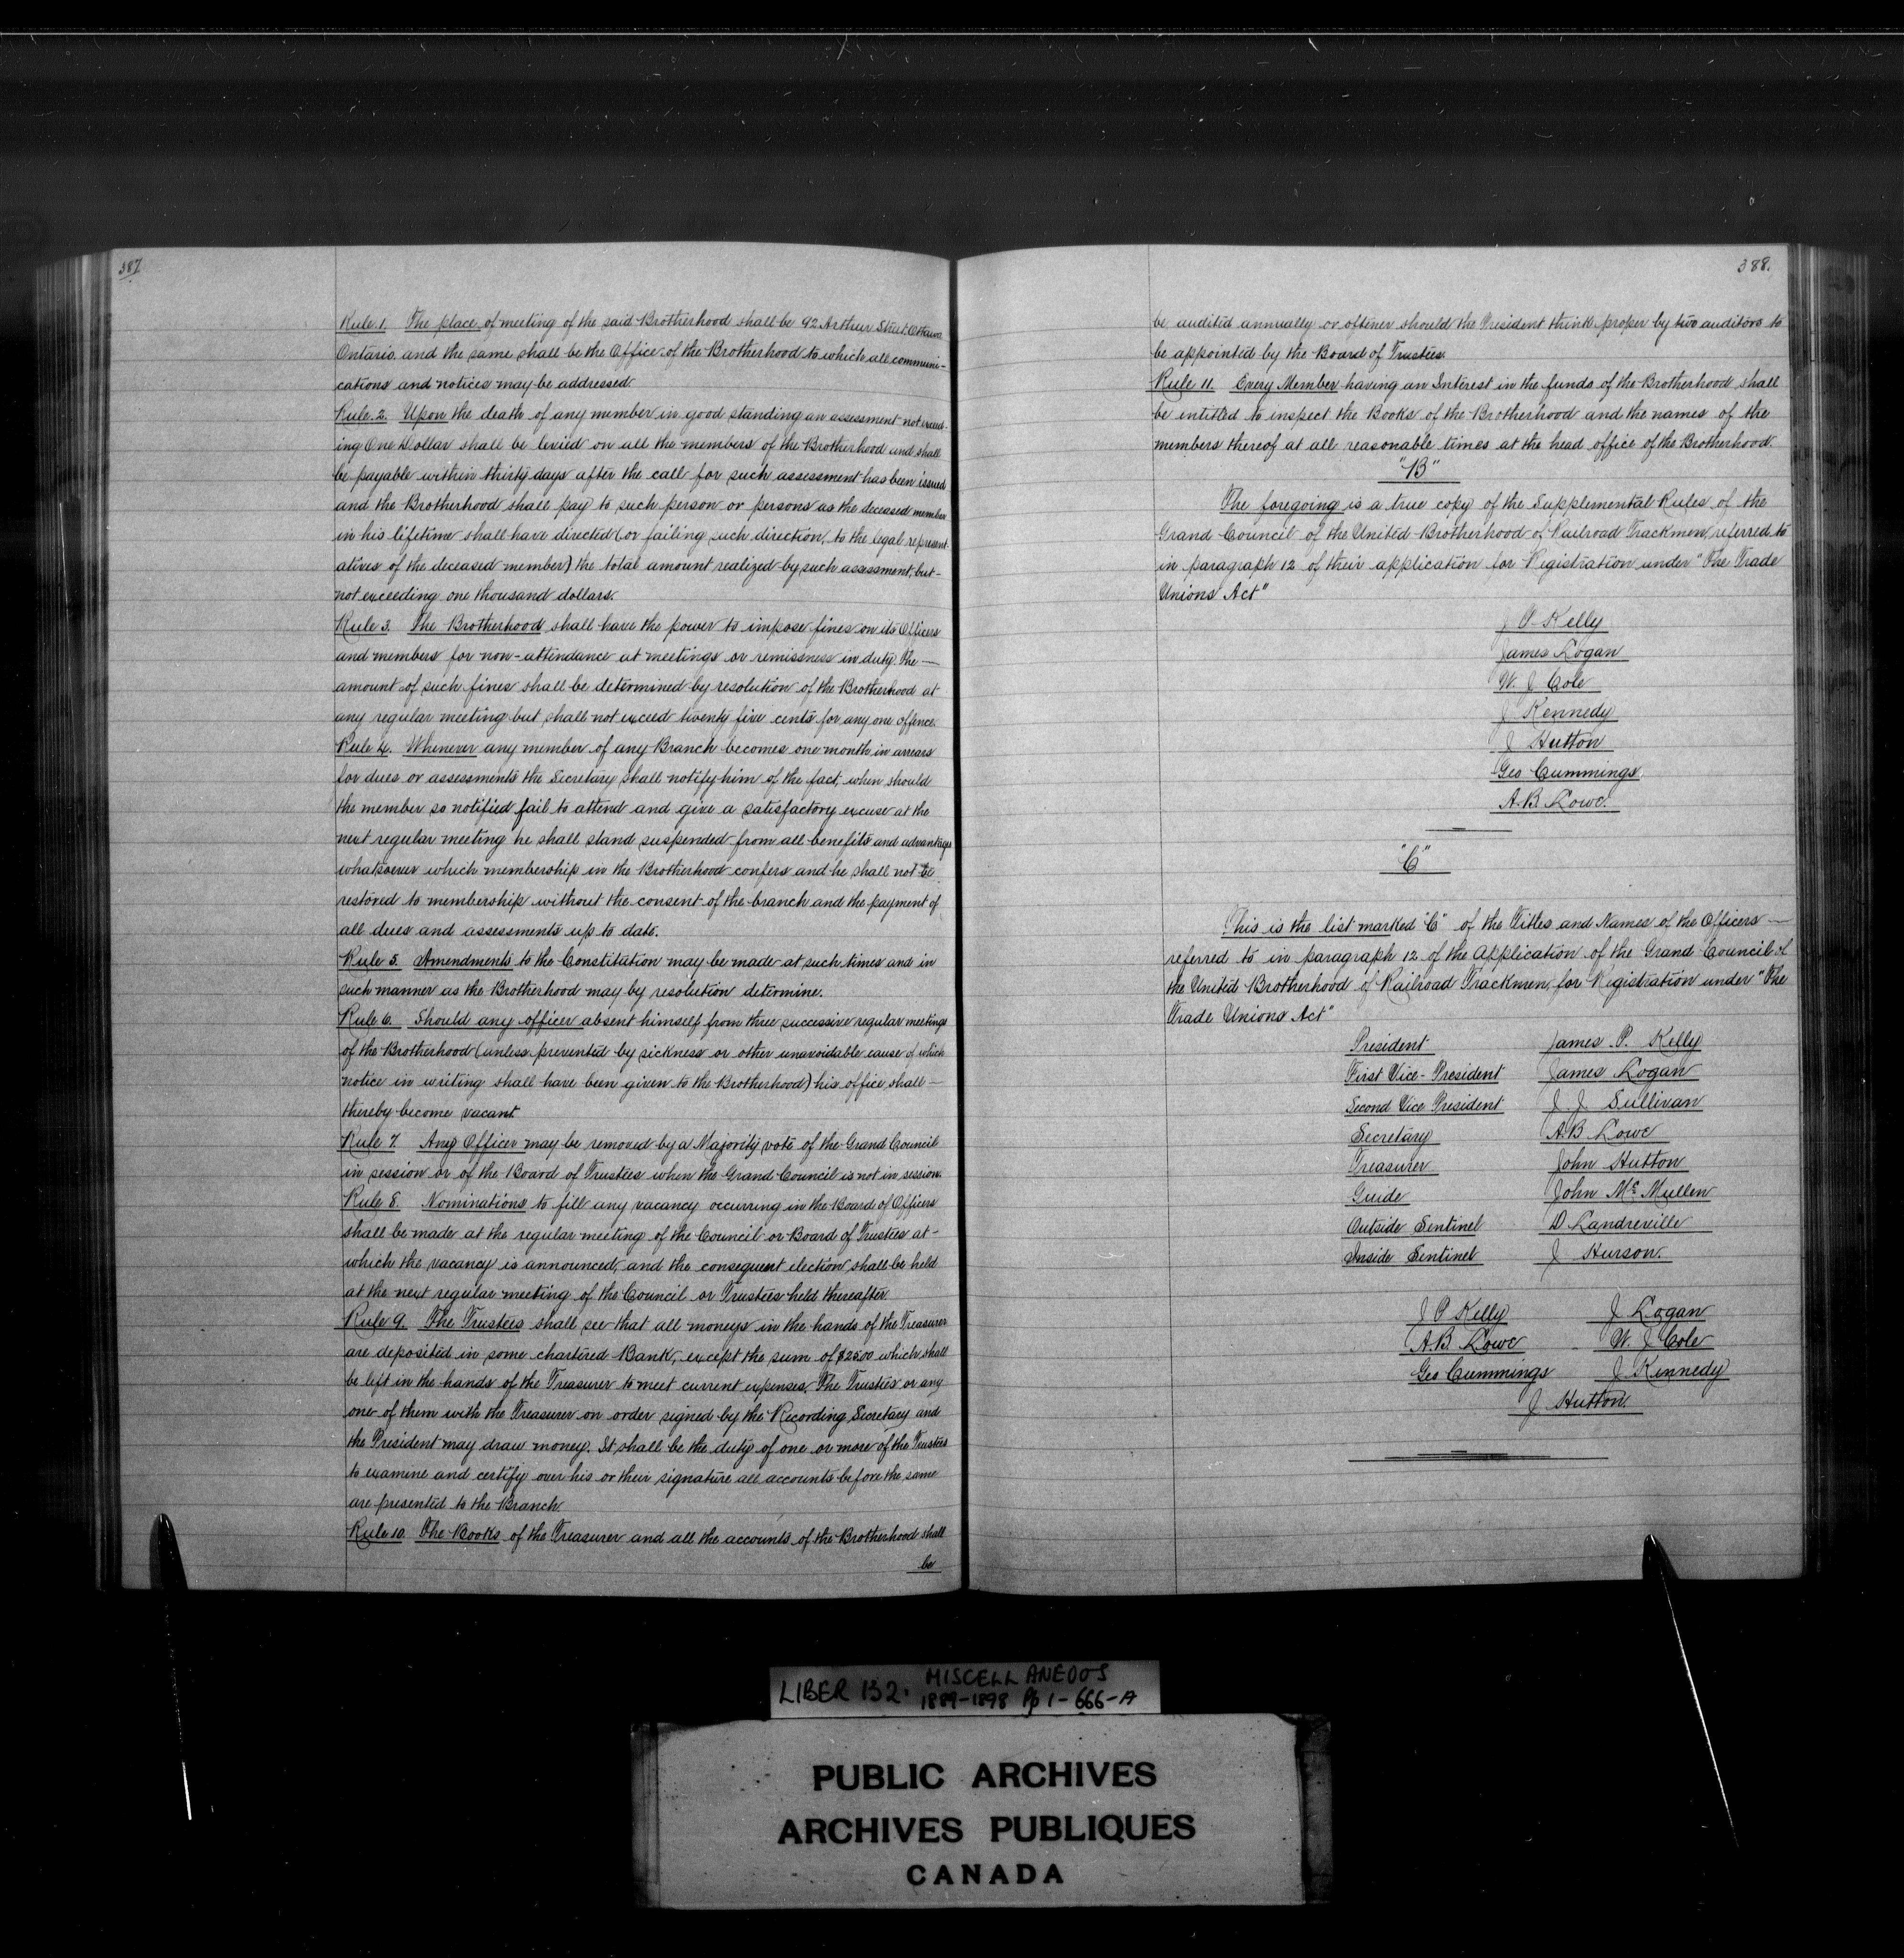 387
Rule 1. The place of meeting of the said Brotherhood shall be 92 Arthur Street Ottawa
Ontario. and the same shall be the Office of the Brotherhood to which all communi-
cations and notices may be addressed.
Rule 2. Upon the death of any member in good standing an assessment not exceed-
ing One Dollar shall be levied on all the members of the Brotherhood and shall
be payable within thirty days after the call for such assessment has been issued
and the Brotherhood shall pay to such person or persons as the deceased member
in his lifetime shall have directed (or failing such direction, to the legal represent-
atives of the deceased member) the total amount realized by such assessment, but-
not exceeding one thousand dollars.
Rule 3. The Brotherhood shall have the power to impose fines on its Officers
and members for non-attendance at meetings or remissness in duty. The —
amount of such fines shall be determined by resolution of the Brotherhood at
any regular meeting but shall not exceed twenty five cents for any one offence.
Rule 4. Whenever any member of any Branch becomes one month in arrears
for dues or assessments the Secretary shall notify him of the fact, when should
the member so notified fail to attend and give a satisfactory excuse at the
next regular meeting he shall stand suspended from all benefits and advantages
whatsoever which membership in the Brotherhood confers and he shall not be
restored to membership without the consent of the branch and the payment of
all dues and assessments up to date.
Rule 5. Amendments to the Constitution may be made at such times and in
such manner as the Brotherhood may by resolution determine.
Rule 6. Should any officer absent himself from three successive regular meetings
of the Brotherhood (unless prevented by sickness or other unavoidable cause of which
notice in writing shall have been given to the Brotherhood) his office shall —
thereby become vacant.
Rule 7 Any Officer may be removed by a Majority vote of the Grand Council
in session or of the Board of Trustees when the Grand Council is not in session.
Rule 8. Nominations to fill any vacancy occurring in the Board of Officers
shall be made at the regular meeting of the Council or Board of Trustees at-
which the vacancy is announced, and the consequent election shall be held
at the next regular meeting of the Council or Trustees held thereafter.
Rule 9. The Trustees shall see that all moneys in the hands of the Treasurer
are deposited in some chartered Bank, except the sum of $25.00 which shall
be left in the hands of the Treasurer to meet current expenses. The Trustees or any
one of them with the Treasurer on order signed by the Recording Secretary and
the President may draw money. It shall be the duty of one or more of the Trustees
to examine and certify over his or their signature all accounts before the same
are presented to the Branch.
Rule 10. The Books of the Treasurer and all the accounts of the Brotherhood shall
be
388.
be audited annually or oftener should the President think proper by two auditors to
be appointed by the Board of Trustees.
Rule 11. Every Member having an Interest in the funds of the Brotherhood shall
be entitled to inspect the Books of the Brotherhood and the names of the
members thereof at all reasonable times at the head office of the Brotherhood.
"B"
The foregoing is a true copy of the Supplemental Rules of the
Grand Council of the United Brotherhood of Railroad Trackmen, referred to
in paragraph 12 of their application for Registration under "The Trade
Unions Act"
J P Kelly
James Logan
W. J Cole
J Kennedy
J Hutton
Geo Cummings.
A. B. Lowe.
"C"
This is the list marked "C" of the Titles and Names of the Officers —
referred to in paragraph 12 of the Application of the Grand Council of
the United Brotherhood of Railroad Trackmen, for Registration under "The
Trade Unions Act"
President James P. Kelly
First Vice-President James Logan
Second Vice President J J Sullivan
Secretary A. B Lowe
Treasurer John Hutton
Guide John Mc Mullen
Outside Sentinel D Landreville
Inside Sentinel J Hurson.
J P Kelly J Logan
A. B. Lowe W. J Cole
Geo Cummings J Kennedy
J Hutton.
LIBER 132. MISCELLANEOUS
1889-1898 Pp 1-666-A
PUBLIC ARCHIVES
ARCHIVES PUBLIQUES
CANADA